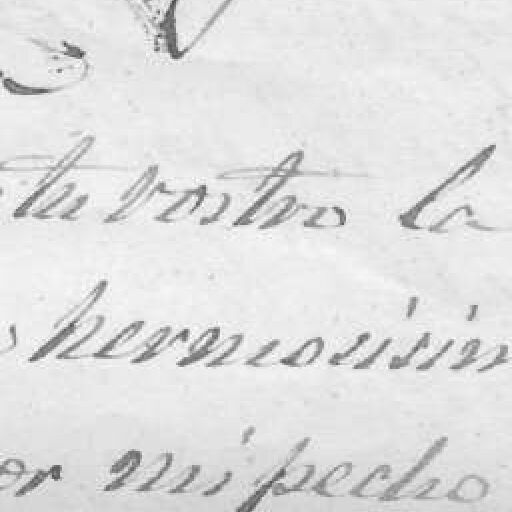 tu rostro la
hermosisim
or mi pecho